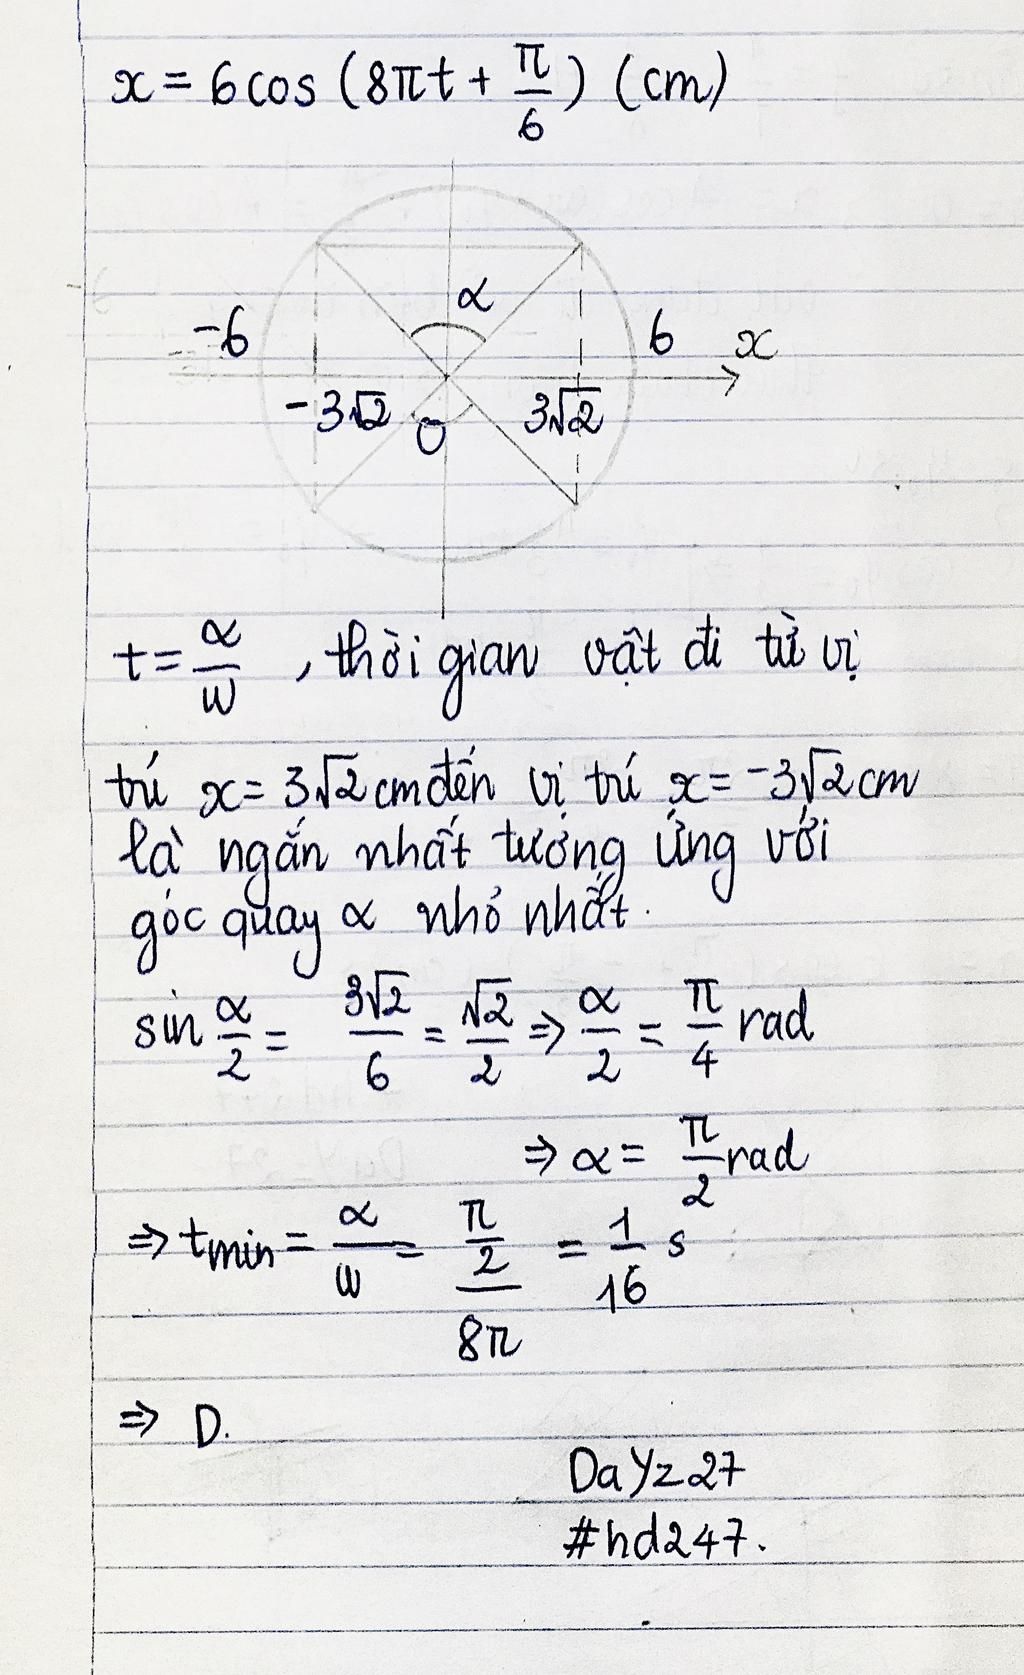 x = 6cos (8πt + π/6) (cm)
α
-6 6 x
-3√2 O 3√2
t = α/ω , thời gian vật đi từ vị
trí x = 3√2 cm đến vị trí x = -3√2 cm
là ngắn nhất tương ứng với
góc quay α nhỏ nhất.
sin α/2 = 3√2/6 = √2/2 ⇒ α/2 = π/4 rad
⇒ α = π/2 rad
⇒ tmin = α/ω = π/2/8π = 1/16 s
⇒ D.
DaYz27
#hd247.